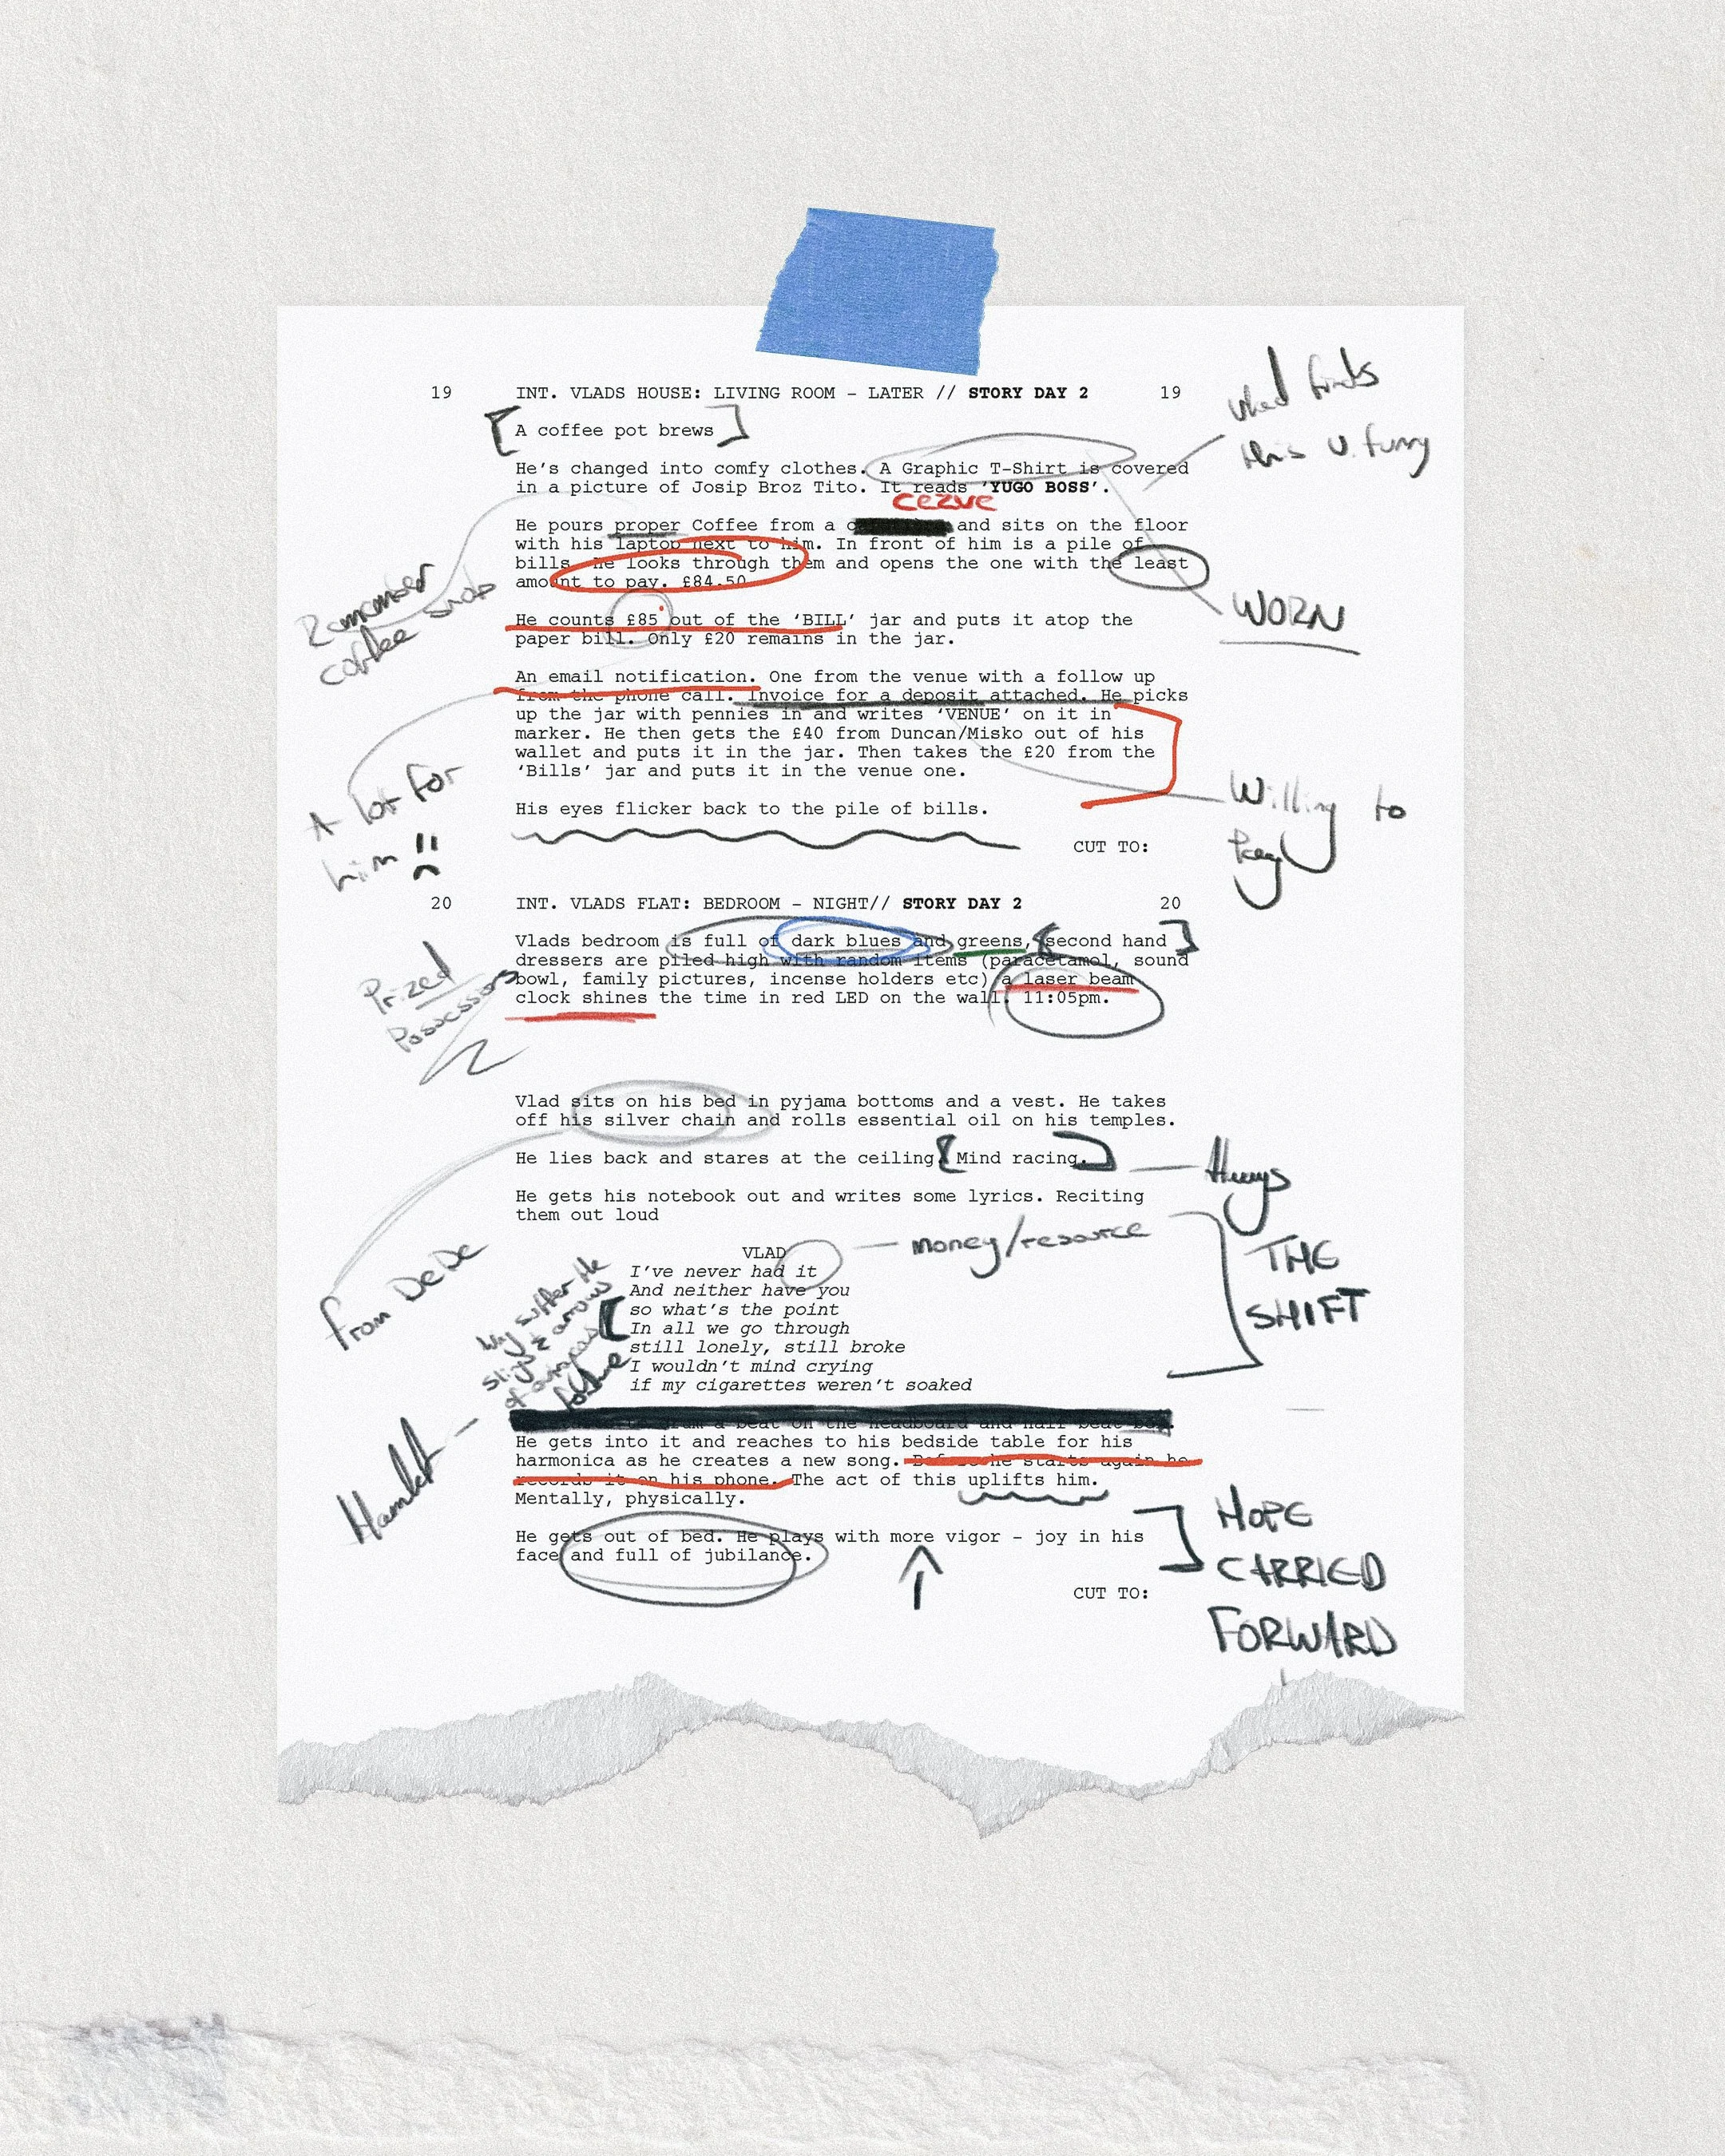 19 INT. VLADS HOUSE: LIVING ROOM – LATER // STORY DAY 2 19
A coffee pot brews
Vlad finds
this v. funny
He’s changed into comfy clothes. A Graphic T-Shirt is covered
in a picture of Josip Broz Tito. It reads ‘YUGO BOSS’.
cezve
He pours proper Coffee from a and sits on the floor
with his laptop next to him. In front of him is a pile of
bills. He looks through them and opens the one with the least
amount to pay. £84.50
Remember
coffee snob
WORN
He counts £85 out of the ‘BILL’ jar and puts it atop the
paper bill. Only £20 remains in the jar.
An email notification. One from the venue with a follow up
from the phone call. Invoice for a deposit attached. He picks
up the jar with pennies in and writes ‘VENUE’ on it in
marker. He then gets the £40 from Duncan/Misko out of his
wallet and puts it in the jar. Then takes the £20 from the
‘Bills’ jar and puts it in the venue one.
A lot for
him
Willing to
Pay
His eyes flicker back to the pile of bills.
CUT TO:
20 INT. VLADS FLAT: BEDROOM – NIGHT// STORY DAY 2 20
Vlads bedroom is full of dark blues and greens, second hand
dressers are piled high with random items (paracetamol, sound
bowl, family pictures, incense holders etc) a laser beam
clock shines the time in red LED on the wall. 11:05pm.
Prized
Possessions
Vlad sits on his bed in pyjama bottoms and a vest. He takes
off his silver chain and rolls essential oil on his temples.
from DeDe
He lies back and stares at the ceiling. Mind racing.
He gets his notebook out and writes some lyrics. Reciting
them out loud
money/resource
THE
SHIFT
VLAD
I’ve never had it
And neither have you
so what’s the point
In all we go through
still lonely, still broke
I wouldn’t mind crying
if my cigarettes weren’t soaked
suffer the
of
Hamlet
a beat on the headboard and half beat
He gets into it and reaches to his bedside table for his
harmonica as he creates a new song. Before he starts again he
records it on his phone. The act of this uplifts him.
Mentally, physically.
He gets out of bed. He plays with more vigor – joy in his
face and full of jubilance.
HOPE
CARRIED
FORWARD
CUT TO: